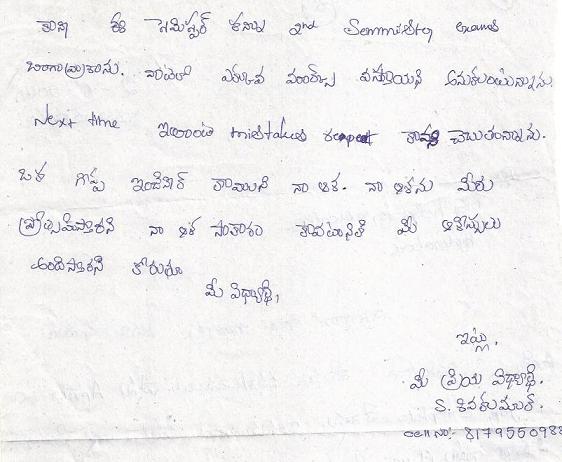 కాని ఈ సెమిస్టర్ కన్నా 2nd Semmister exams
బాగా(వ్రా)శాను. నాకు ఎక్కువ మార్కులు వస్తాయని అనుకుంటున్నాను.
Next time ఇలాంటి mistakes repeat కావని చెబుతున్నాను.
ఒక గొప్ప ఇంజినీర్ కావాలని నా ఆశ. నా ఆశను మీరు
ప్రోత్సహిస్తారని నా ఆశ సాకారం కావటానికి మీ ఆశీస్సులు
అందిస్తారని కోరుతూ
మీ విధ్యార్థి,
ఇట్లు.
మీ ప్రియ విధ్యార్థి.
S. శివకుమార్.
cell no:- 817955098